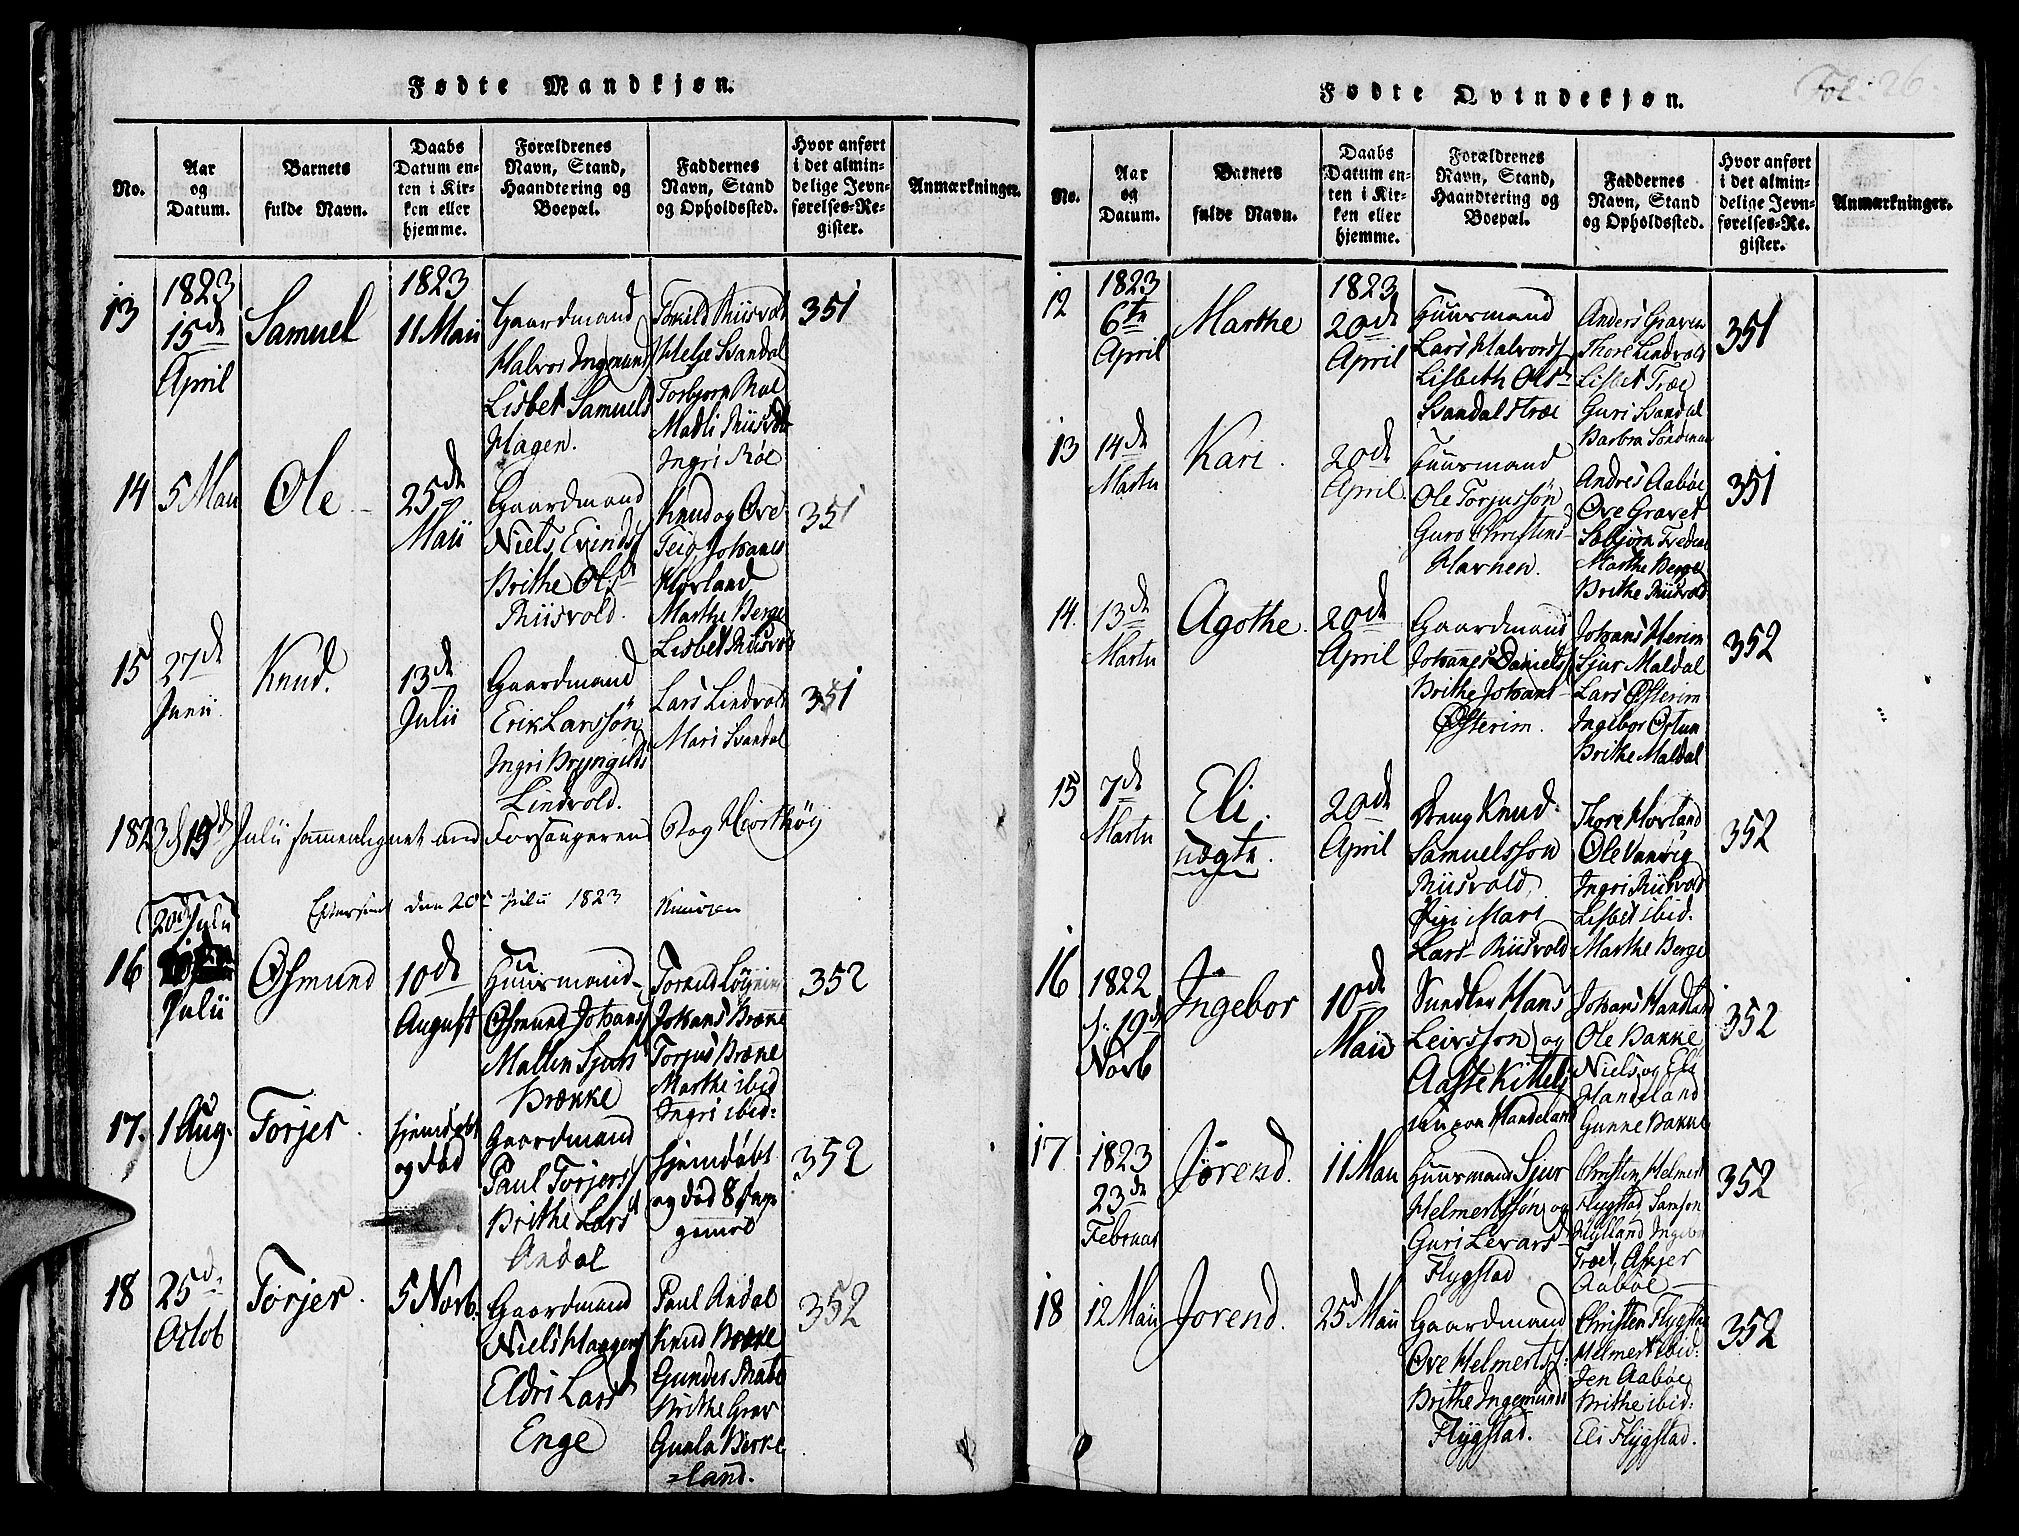 Fødte Mandkjøn.
No.
Aar
og
Datum.
Barnets
fulde Navn.
Daabs
Datum en-
ten i Kir-
ken eller
hjemme.
Forældrenes
Navn, Stand,
Haandtering og
Boepæl.
Faddernes
Navn, Stand
og Opholdssted.
Hvor anført
i det almin-
delige Jevn-
førelses-Re-
gister.
Anmærkninger.
13
1823
15de
April
Samuel
1823
11 Maii
Gaardmand
Halvor
Lisbet Samuels
Hagen.
Riisvold
Helje Svandal
Torbjorn
Madli Riisvold
Ingri Røe
351
14
5 Maii
Ole
25de
Maii
Gaardmand
Niels Evinds
Brithe Olsd
Riisvold.
Knud og Ove
Teig, Johanes
Hovland
Marthe Berge
Lisbet Riisvold
351
15
27de
Junii
Knud.
13de
Julii
Gaardmand
Erik Larssøn
Ingri Bryngilds
Lindvold.
Lars Lindvold
Mari Svandal
351
1823 d 15de Julii sammenlignet med Forsangerens Bog Hjorthøy
Eftersint den 20de Julii 1823
16
20de Julii
Julii
Osmund
10de
August
Huusmand
Osmund Johans
Mallin Sjurs
Brække
Johans Brække
Torjus Brække
Marthe ibid
Ingri ibid:
352
17.
1 Aug.
Torjer.
hjemdøbt
og død
Gaardmand
Paul Torjers
Brithe Larsd
Andal
hjemdøbt
og død 8 Dage
gamel
352
18
25de
Octob
Torjer.
5 Novb.
Gaardmand
Niels Haagens
Eldri Larsd
Enge
Paul Andal
Knud Brække
Gunder
Brithe Grov
Guala Birke
=land.
352
Fødte Qvindekjøn.
Fol: 26.
No.
Aar
og
Datum.
Barnets
fulde Navn.
Daabs
Datum en-
ten i Kir-
ken eller
hjemme.
Forældrenes
Navn, Stand,
Haandtering og
Boepæl.
Faddernes
Navn, Stand
og Opholdssted.
Hvor anført
i det almin-
delige Jevn-
førelses-Re-
gister.
Anmærkninger.
12
1823
6te
April
Marthe
1823
20de
April
Huusmand
Lars Halvors
Lisbeth Olsd
Svandalstræe
Anders Graven
Thore Lindvold
Lisbet Træe
Guri Svandal
Barbra Søndenaa
351
13
14de
Martii
Kari.
20de
April.
Huusmand
Ole Torjussøn
Guro Christens
Havnen.
Andres Aabøe
Ove Gravet
Marthe Berge
Brithe Riisvold
351
14.
13de
Martii
Agothe.
20de
April
Gaardmand
Johannes Daniels
Brithe Johans
Østerim.
Johans Herim
Sjur Maldal
Lars Østerim
Ingebor Østun
Brithe Maldal
352
15
7de
Martii
Eli.
uægte.
20de
April
Dreng Knud
Samuelsson
Riisvold
Pige Mari
Lars Riisvold
Thore Hovland
Ole Vanvig
Ingri Riisvold
Lisbet ibid.
Marthe Berge
352
16
1822
d: 19de
Novb
Ingebor
10de
Maii
Hans
Leivsson og
Aaste Kittels
Handeland
Johans Handeland
Ole Bakke
Niels og Eli
Handeland
Gunne Bakke
352
17
1823
23de
Februar
Jørend.
11 Maii
Huusmand Sjur
Helmertssøn og
Guri Levards
Flygstad
Christen Helmert
Flygstad Samson
Hylland Ingebor
Træet, Asjer
Aabøe
352
18
12 Maii
Jorend.
25d Maii
Gaardmand
Ove Helmerts:
Brithe Ingemunds
Flygstad.
Christen Flygstad
Helmert ibid:
Jen Aabøe
Brithe ibid:
Eli Flygstad.
352